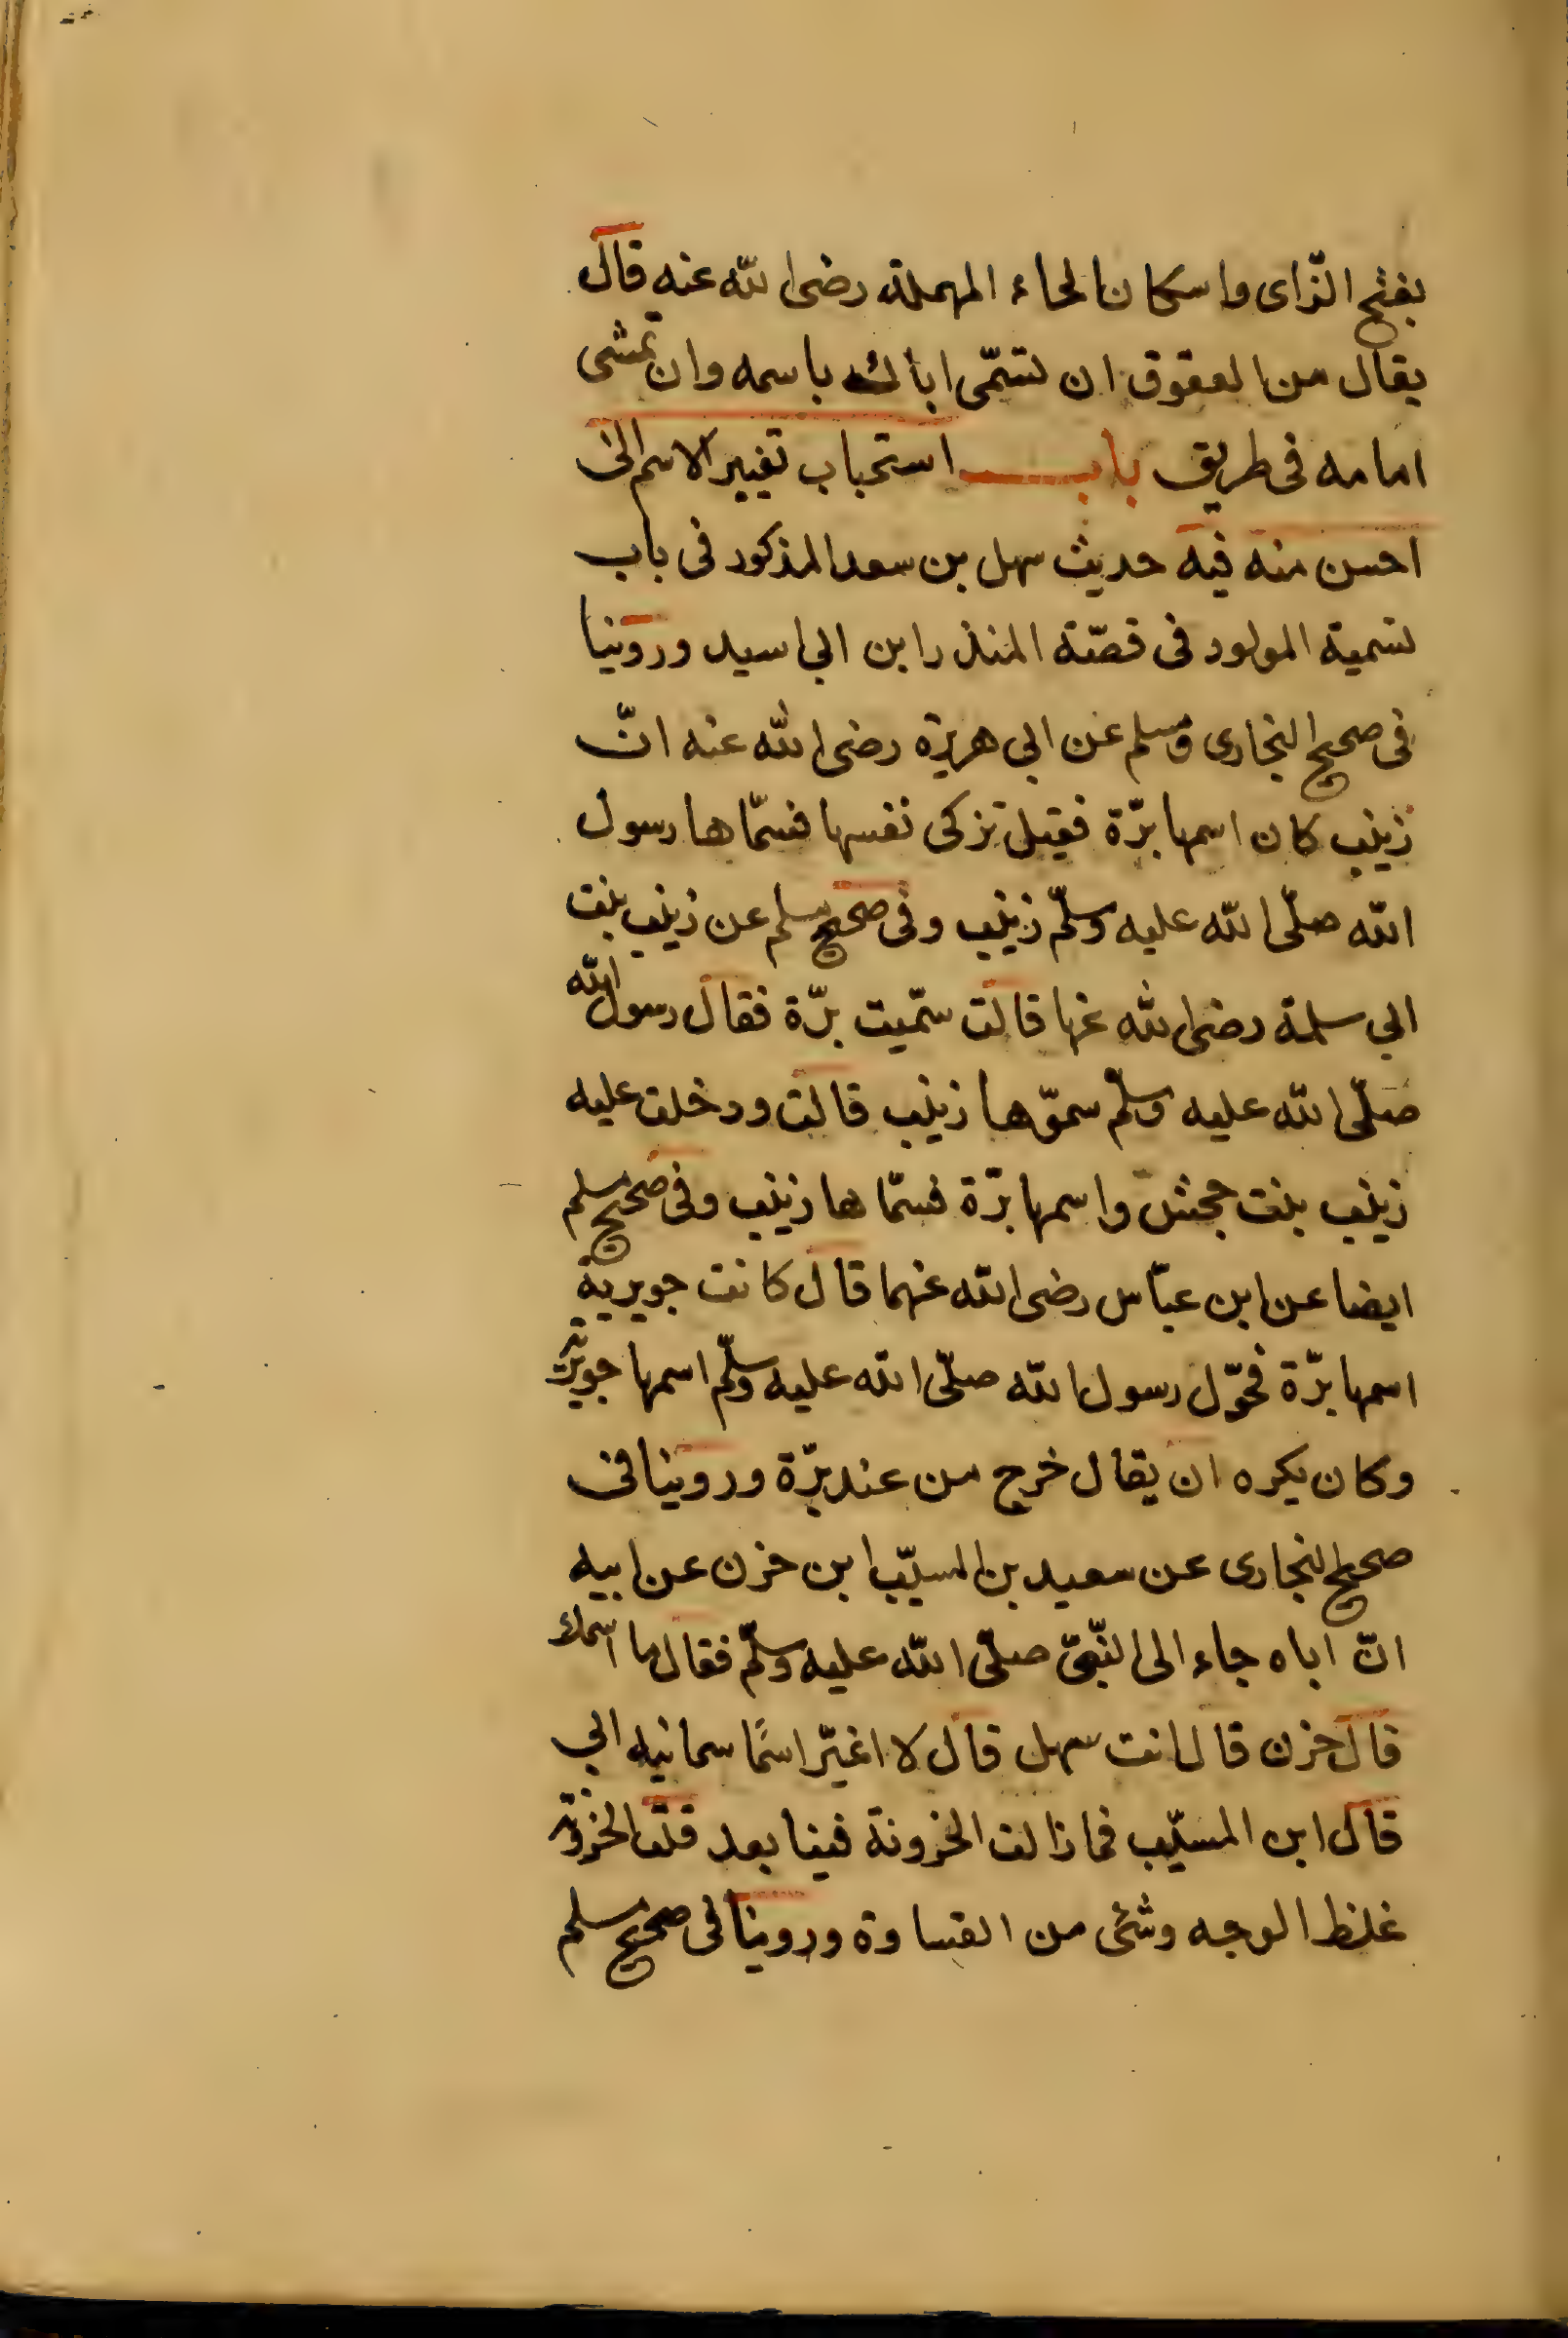 بفتح الزّاى واسكان الحاء المهملة رضى الله عنه قال
يقال من العقوق ان تسمّى اباك باسمه وان تمشى
امامه فى طريق باب استحباب تغيير الاسم الى
احسن منه فيه حديث سهل بن سعد المذكور فى باب
تسمية المولود فى قصّة المنذر ابن ابى اسيد وروينا
فى صحيح البخارى ومسلم عن ابى هريرة رضى الله عنه انّ
زينب كان اسمها برّة فقيل تزكى نفسها فسمّاها رسول
الله صلّى الله عليه وسلّم زينب وفى صحيح مسلم عن زينب بنت
ابى سلمة رضى الله عنها قالت سمّيت برّة فقال رسول الله
صلّى الله عليه وسلّم سمّوها زينب قالت ودخلت عليه
زينب بنت جحش واسمها برّة فسمّاها زينب وفى صحيح مسلم
ايضا عن ابن عبّاس رضى الله عنهما قال كانت جويرية
اسمها برّة فحوّل رسول الله صلّى الله عليه وسلّم اسمها جويرية
وكان يكره ان يقال خرج من عند برّة وروينا فى
صحيح البخارى عن سعيد بن المسيّب ابن حزن عن ابيه
انّ اباه جاء الى النّبىّ صلّى الله عليه وسلّم فقال ما اسمك
قال حزن قال انت سهل قال لا اغيّر اسمًا سمانيه ابى
قال ابن المسيّب فمازالت الحزونة فينا بعد قلت الحزونة
غلظ الوجه وشئ من القساوة وروينا فى صحيح مسلم